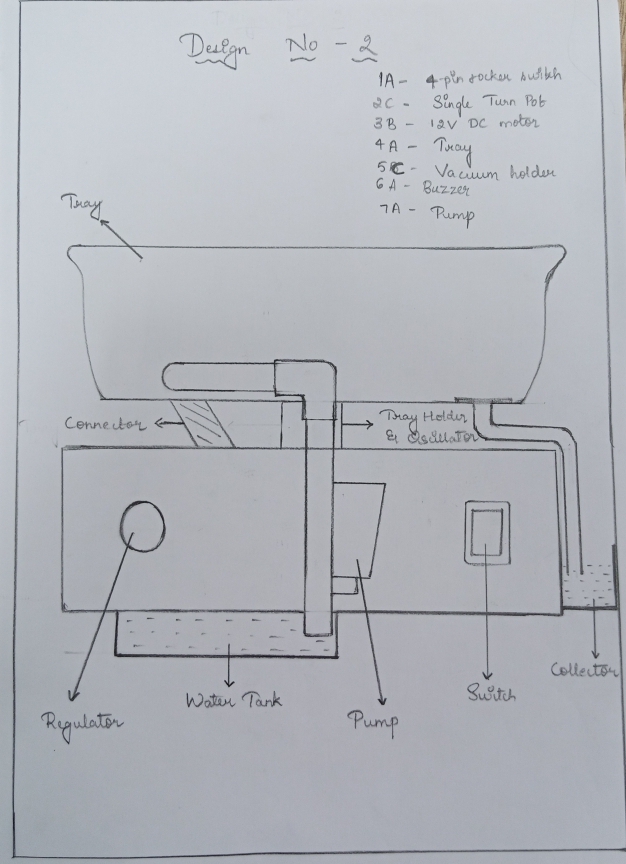 Design No - 2
1A - 4-pin rocker switch
2C - Single Turn Pot
3B - 12V DC motor
4A - Tray
5C - Vacuum holder
6A - Buzzer
7A - Pump
Tray
Connector
Tray Holder
& Oscillator
Collector
Water Tank
Switch
Regulator
Pump